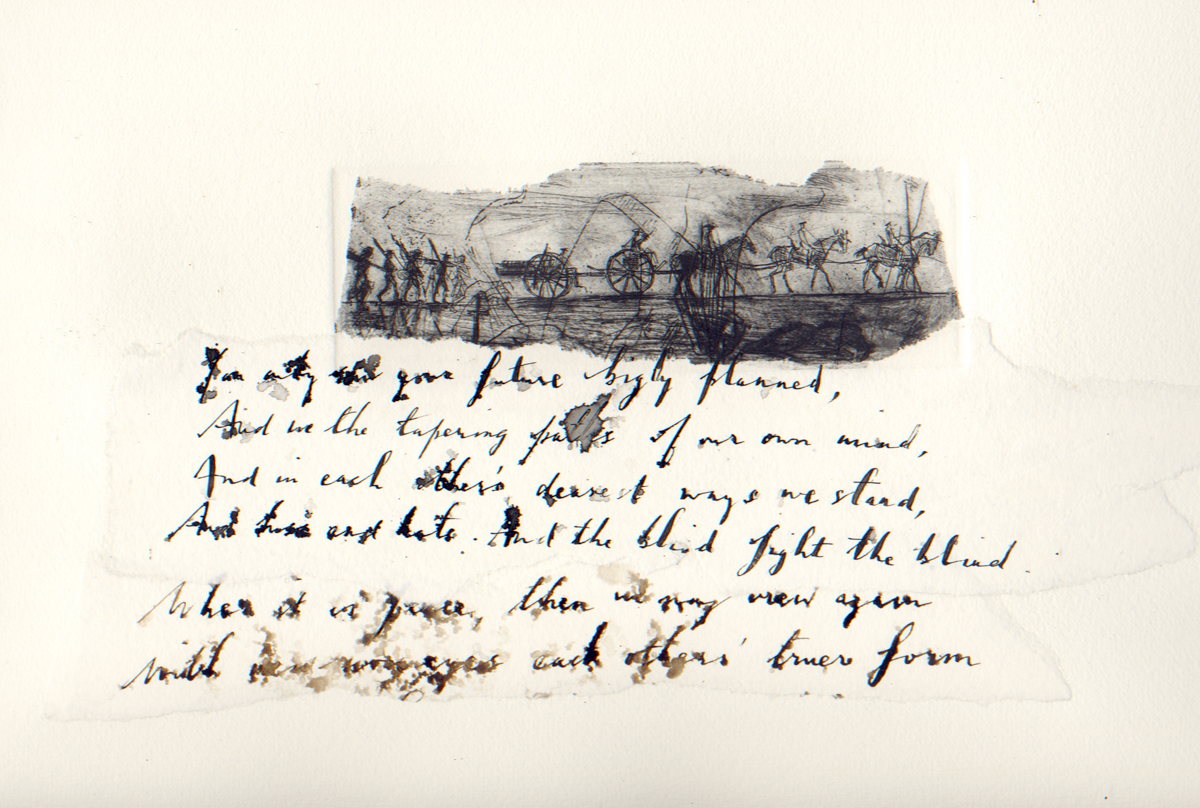 You only saw your future bigly planned,
And we the tapering paths of our own mind,
And in each other's dearest ways we stand,
And hiss and hate. And the blind fight the blind.
When it is peace, then we may view again
With new won eyes each others' truer form